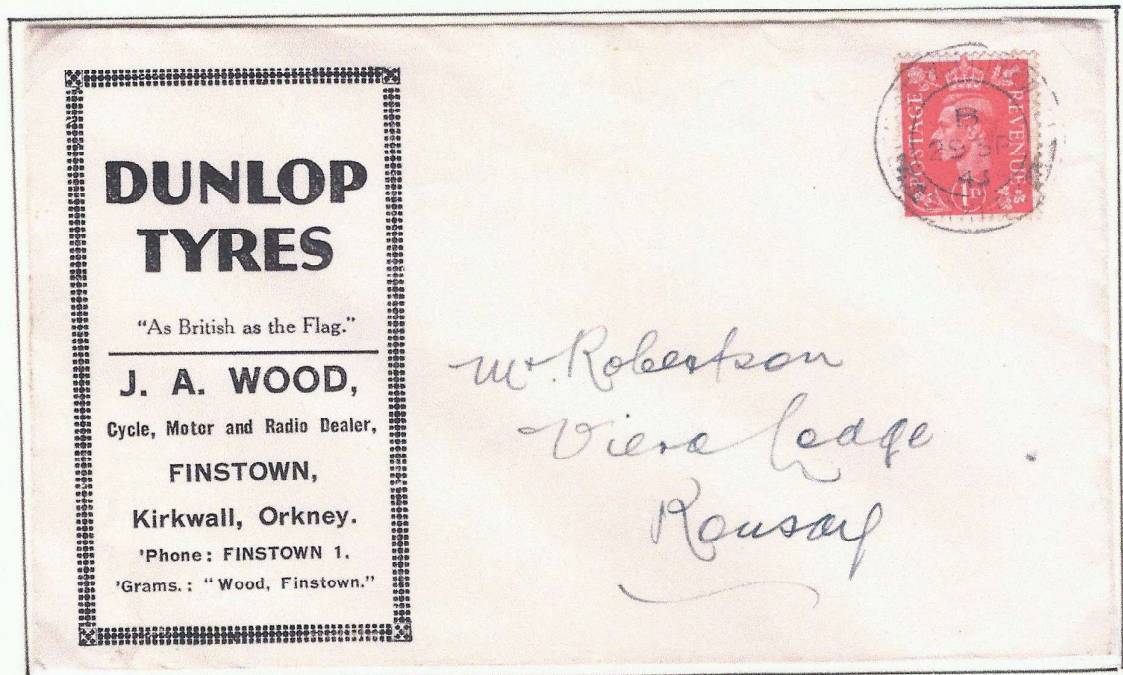 DUNLOP
TYRES
"As British as the Flag."
J. A. WOOD,
Cycle, Motor and Radio Dealer,
FINSTOWN,
Kirkwall, Orkney.
'Phone: FINSTOWN 1.
'Grams.: "Wood, Finstown."
POSTAGE
REVENUE
1D
B
29 SP
Mr Robertson
Viera Lodge
Rousay